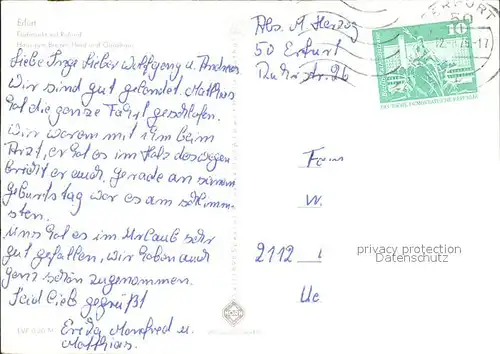 Erfurt
Fischmarkt mit Rathaus
Haus zum Breiten Herd und Gildehaus
Liebe Inge lieber Wolfgang u. Andreas
Wir sind gut gelandet. Mathias
hat die ganze Fahrt geschlafen.
Wir waren mit ihm beim
Arzt, er hat es im Hals deswegen
bricht er auch, gerade an seinem
Geburtstag war es am schlimm-
sten.
Uns hat es im Urlaub sehr
gut gefallen, wir haben auch
ganz schön zugenommen.
Seid lieb gegrüßt
Manfred u.
Matthias.
Abs. M Herzog
50 Erfurt
26
ERFURT
50
10
DEUTSCHE DEMOKRATISCHE REPUBLIK
Fam
W.
2112
Ue
privacy protection
Datenschutz